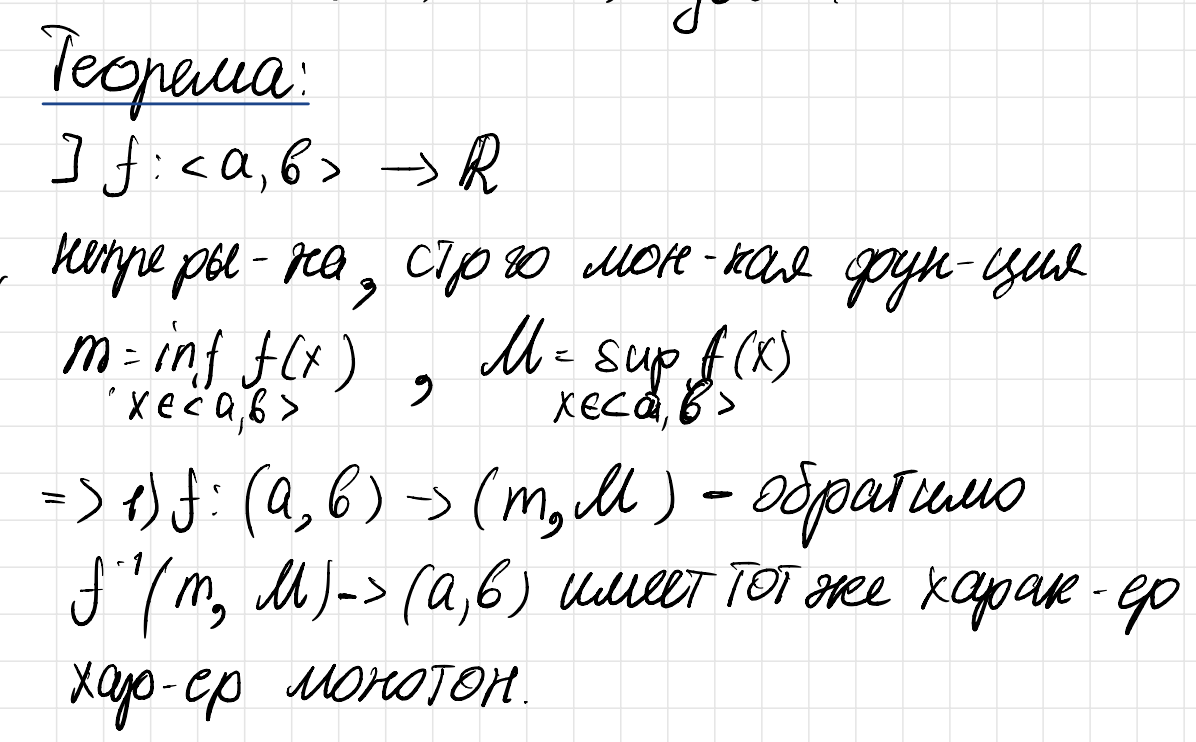 Теорема:
] f: <a, b> → ℝ
непреры-на, строго мон-ная фун-ция
m = inf f(x) , M = sup f(x)
x∈<a,b> x∈<a,b>
=> 1) f: (a, b) -> (m, M) - обратимо
f⁻¹(m, M) -> (a, b) имеет тот же харак-ер
хар-ер монотон.